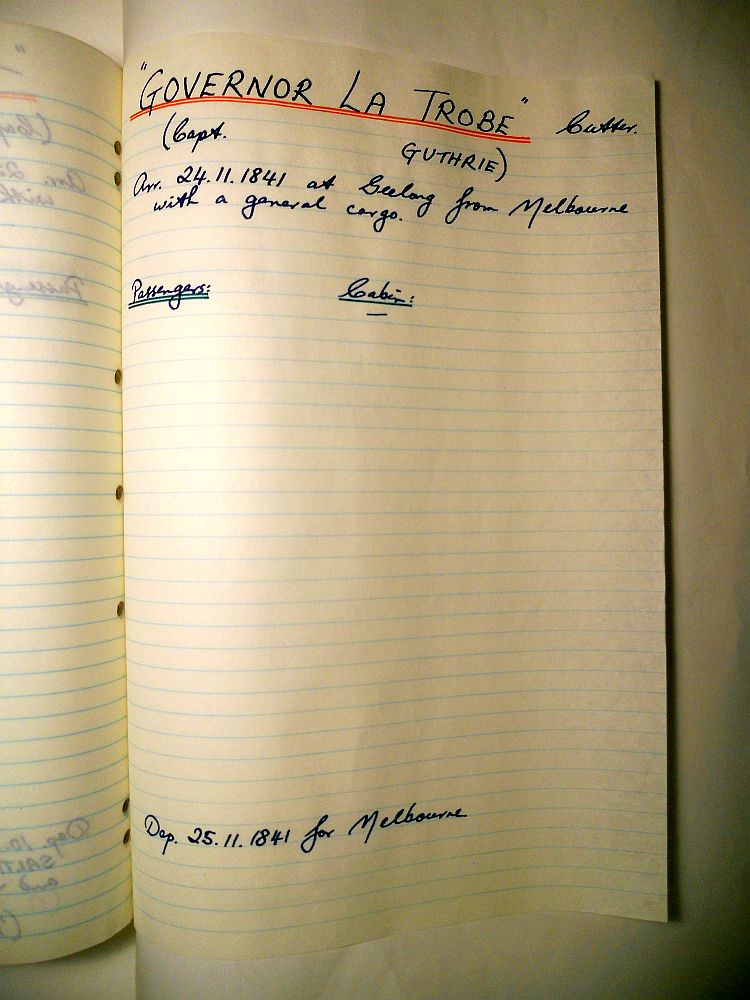 "GOVERNOR LA TROBE" Cutter.
(Capt. GUTHRIE)
Arr. 24.11.1841 at Geelong from Melbourne
with a general cargo.
Passengers: Cabin:
—
Dep. 25.11.1841 for Melbourne